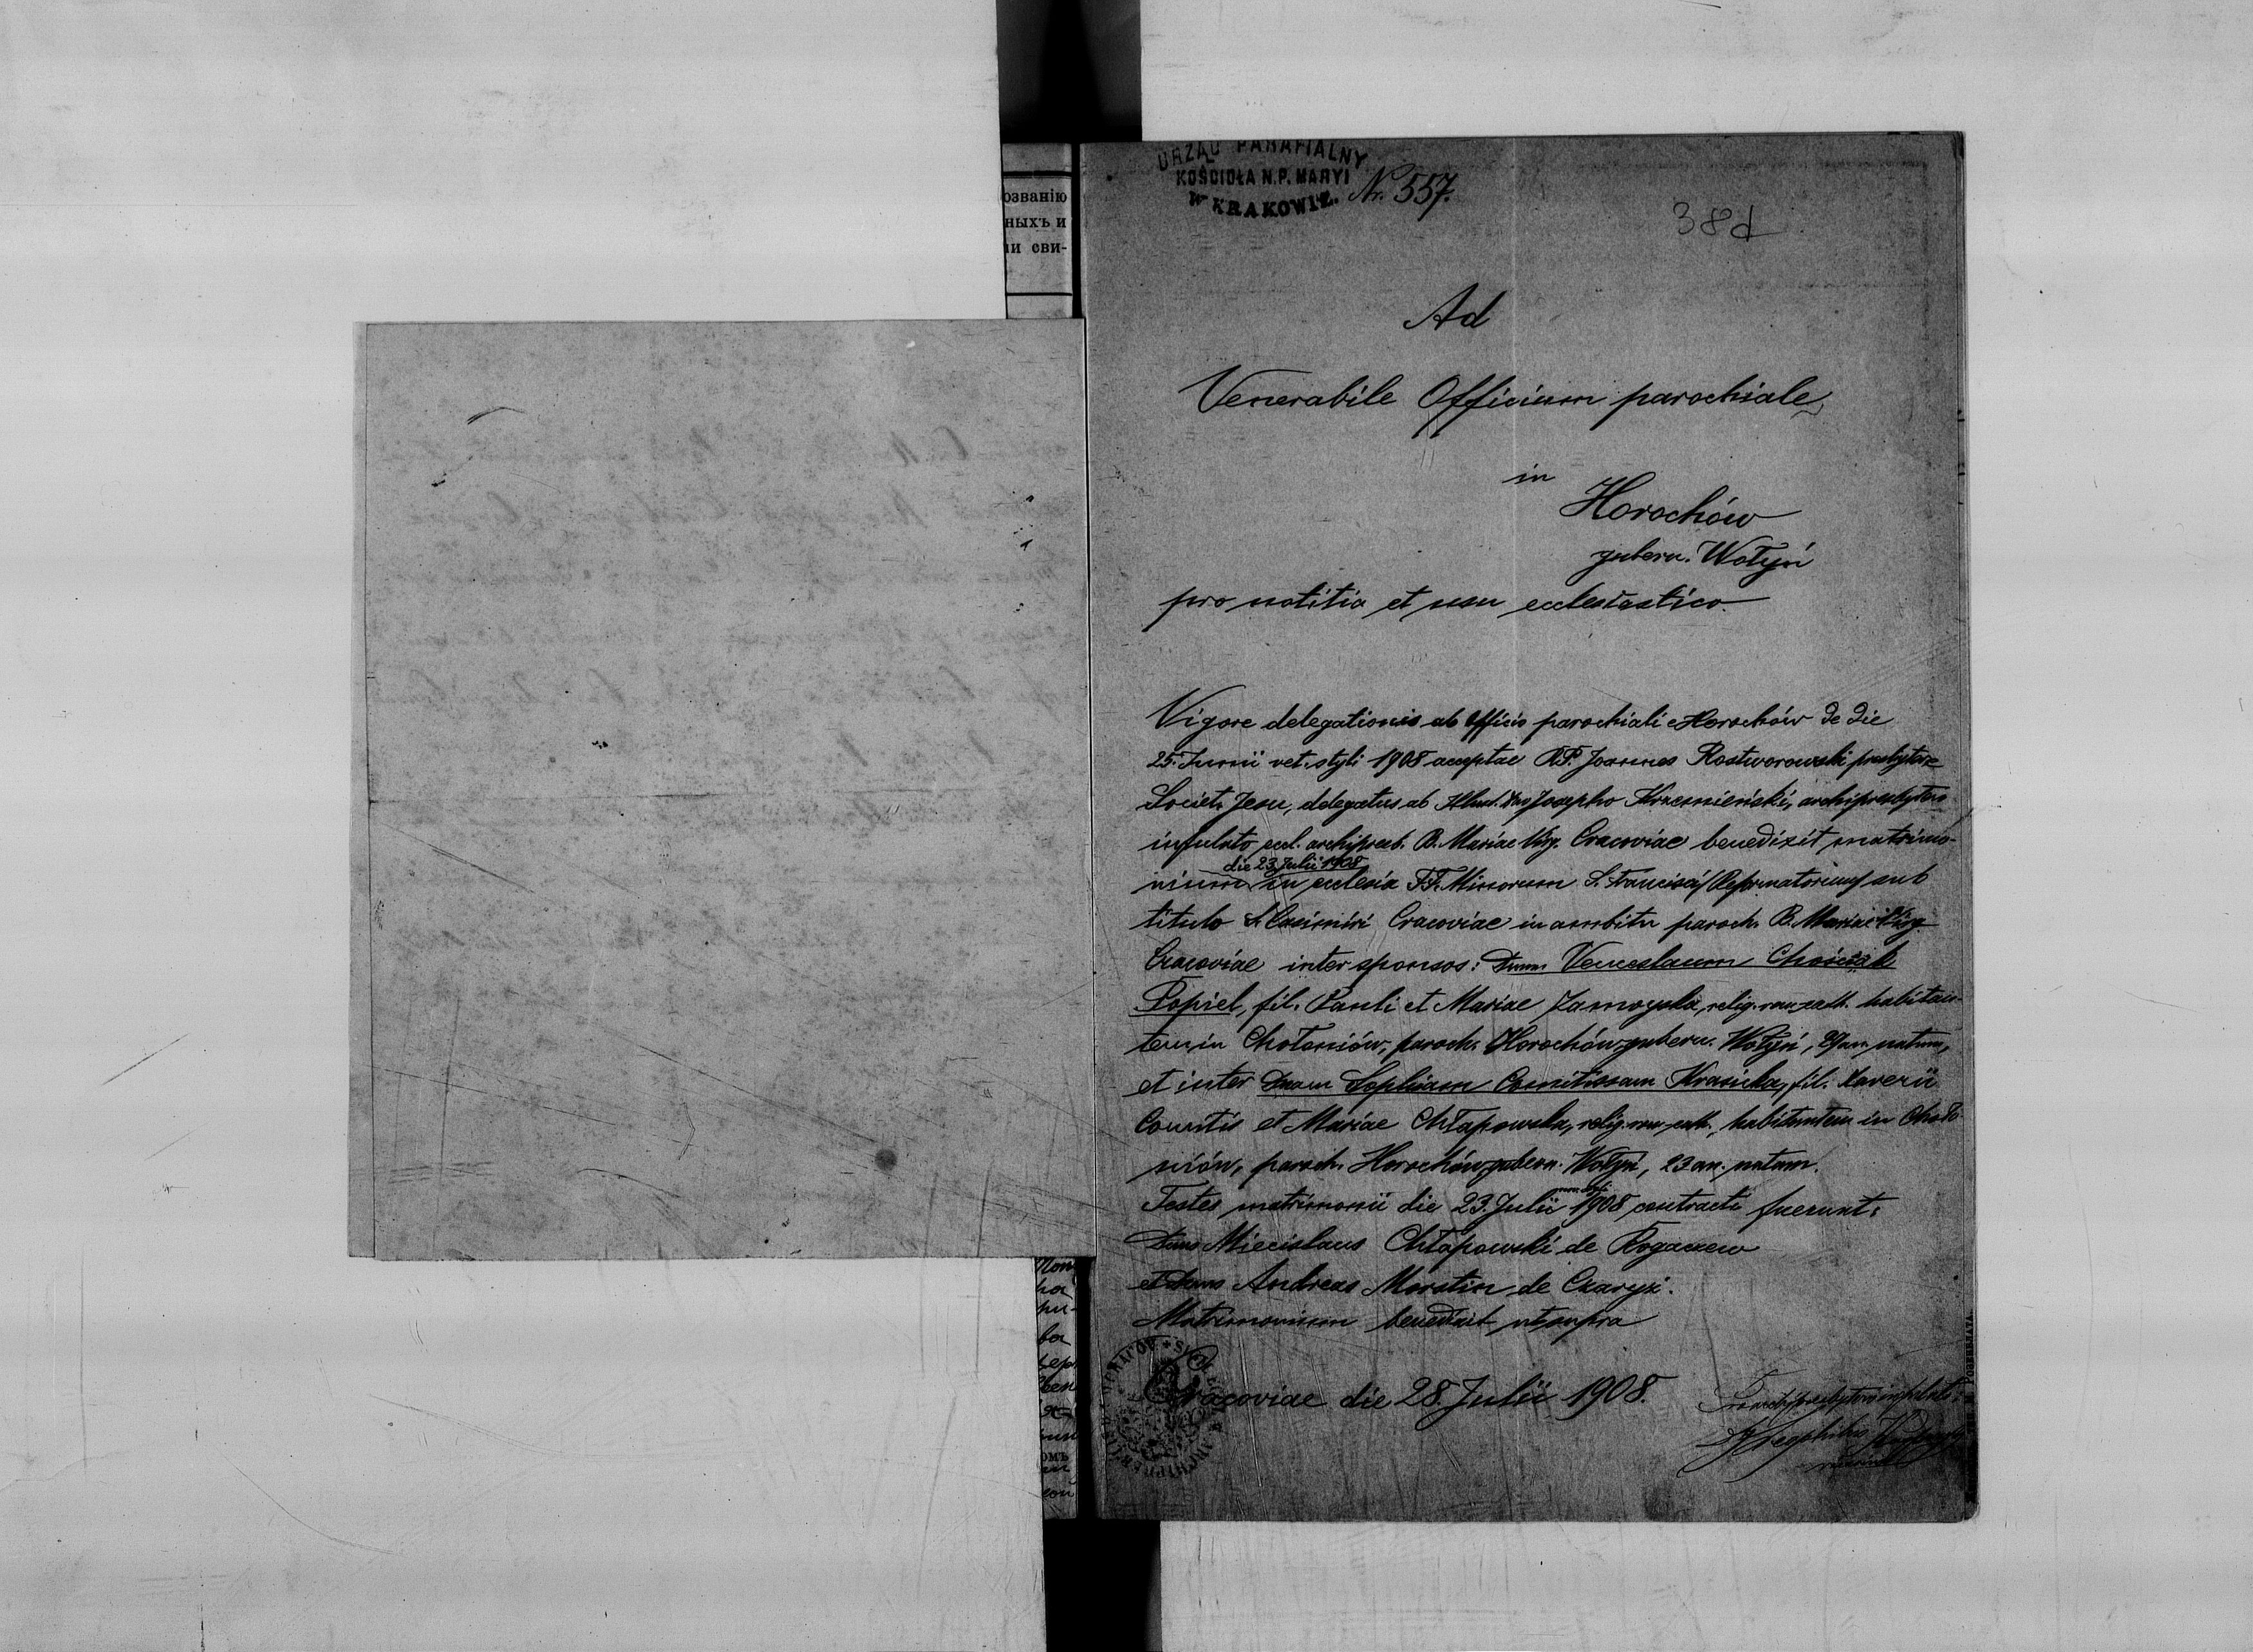 озванію
ныхъ и
и сви-
URZĄD PARAFIALNY
KOŚCIOŁA N.P. MARYI
W KRAKOWIE.
Nr. 557.
38d
Ad
Venerabile Officium parochiale
in
Horochów
gubern. Wołyń
pro notitia et usu ecclesiastico.
Vigore delegationis ab Officio parochiali Horochów de die
25. Junii vet. styli 1908 acceptae RP. Joannes Rostworowski presbyter
Societ. Jesu, delegatus ab Illust. Dno Josepho Krzemieński, archipresbytero
infulato eccl. archipresb. B. Mariae Virg. Cracoviae benedixit matrimo-
die 23 Julii 1908
nium in ecclesia FF. Minorum S. Francisci /Reformatorum/ sub
titulo S. Casimiri Cracoviae in ambitu paroch. B. Mariae Virg.
Cracoviae inter sponsos: Dnum Venceslaum Chościak
Popiel, fil. Pauli et Mariae Zamoyska, relig. rom. cath. habitan-
tem in Chołoniów, paroch. Horochów gubern. Wołyń, 29 an. natum,
et inter Dnam Sophiam Comitissam Krasicka, fil. Xaverii
Comitis et Mariae Chłapowska, relig. rom. cath., habitantem in Choło-
niów, paroch. Horochów gubern. Wołyń, 23 an. natam.
Testes matrimonii die 23. Julii 1908 contracti fuerunt:
Dnus Miecislaus Chłapowski de Rogaczew
et Dnus Andreas Morstin de Czaryż.
Matrimonium benedixit ut supra
Cracoviae die 28. Julii 1908.
Pro archipresbytero infulato: